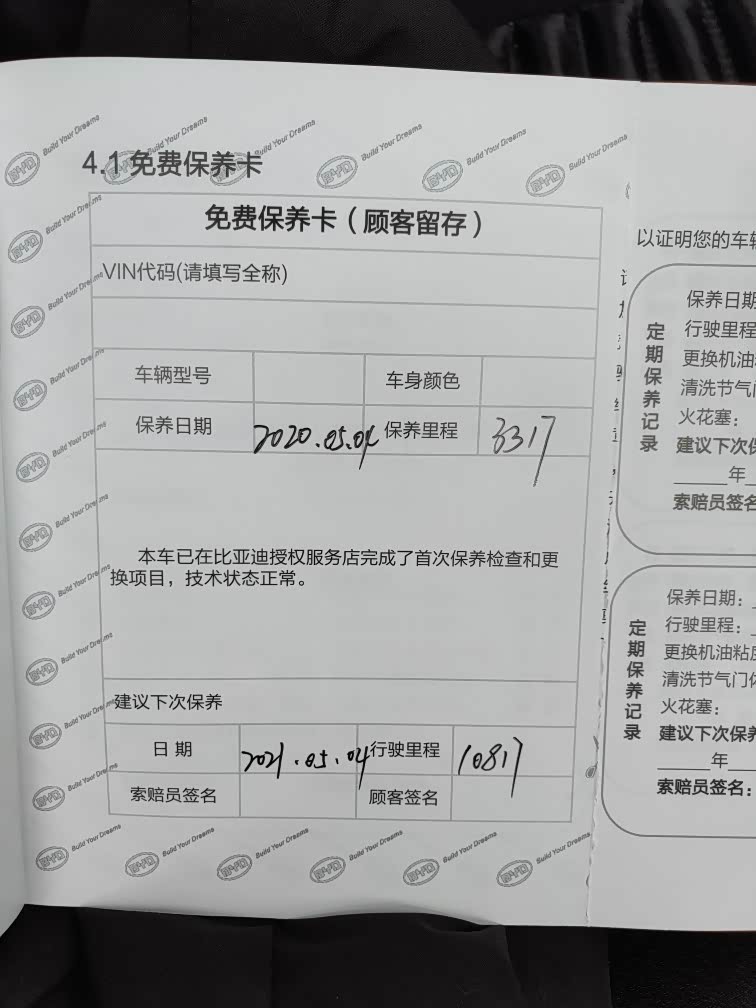 4.1 免费保养卡
免费保养卡（顾客留存）
VIN代码(请填写全称)
车辆型号 车身颜色
保养日期 2020.05.04 保养里程 3317
本车已在比亚迪授权服务店完成了首次保养检查和更
换项目，技术状态正常。
建议下次保养
日 期 2021.05.04 行驶里程 10817
索赔员签名 顾客签名
Build Your Dreams
以证明您的车辆
定期保养记录
保养日期
行驶里程
更换机油
清洗节气门
火花塞：
建议下次保
年
索赔员签名
定期保养记录
保养日期：
行驶里程：
更换机油粘度
清洗节气门体
火花塞：
建议下次保养
年
索赔员签名：